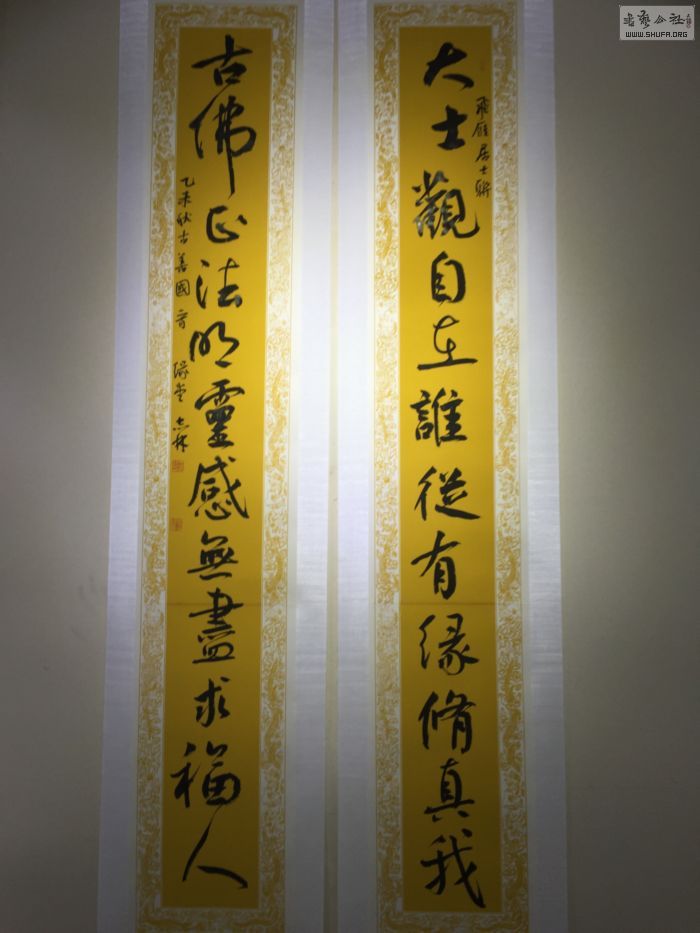 大士觀自在誰從有緣脩真我
居士聯
古佛正法明靈感無盡求福人
乙未秋古善國
書藝公社
WWW.SHUFA.ORG